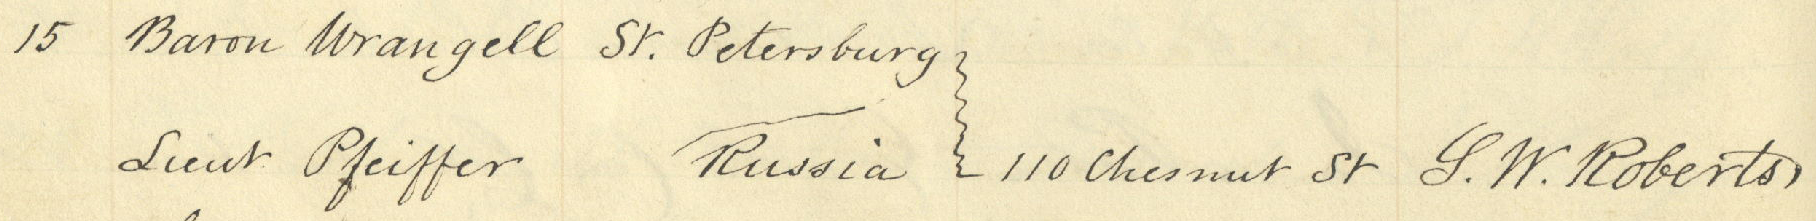 15 Baron Wrangell St. Petersburg
Lieut Pfeiffer Russia 110 Chesnut St S. W. Roberts